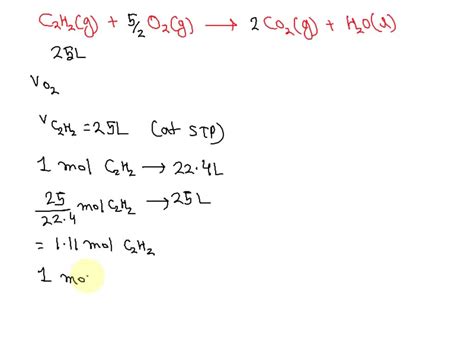 C2H2(g) + 5/2 O2(g) → 2 CO2(g) + H2O(l)
25L
VO2
VC2H2 = 25L (at STP)
1 mol C2H2 → 22.4L
25/22.4 mol C2H2 → 25L
= 1.11 mol C2H2
1 mo